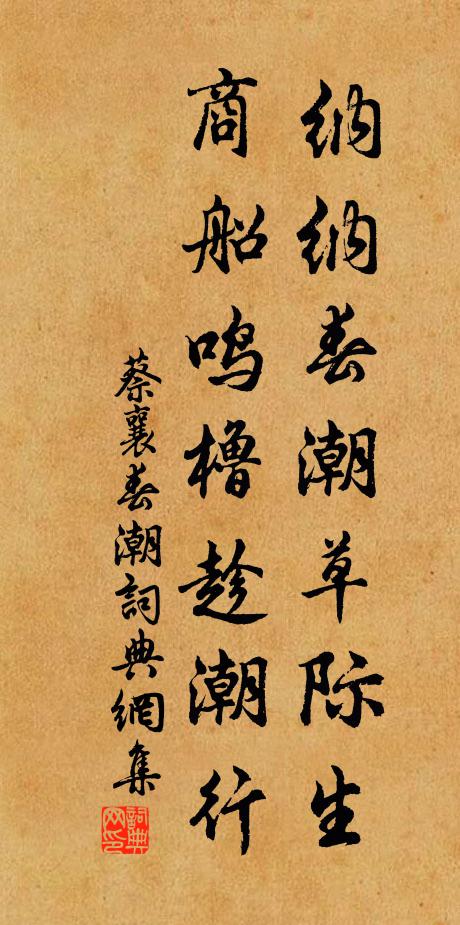 纳纳春潮草际生
商船鸣橹趁潮行
蔡襄春潮詞典網集
詞典网印